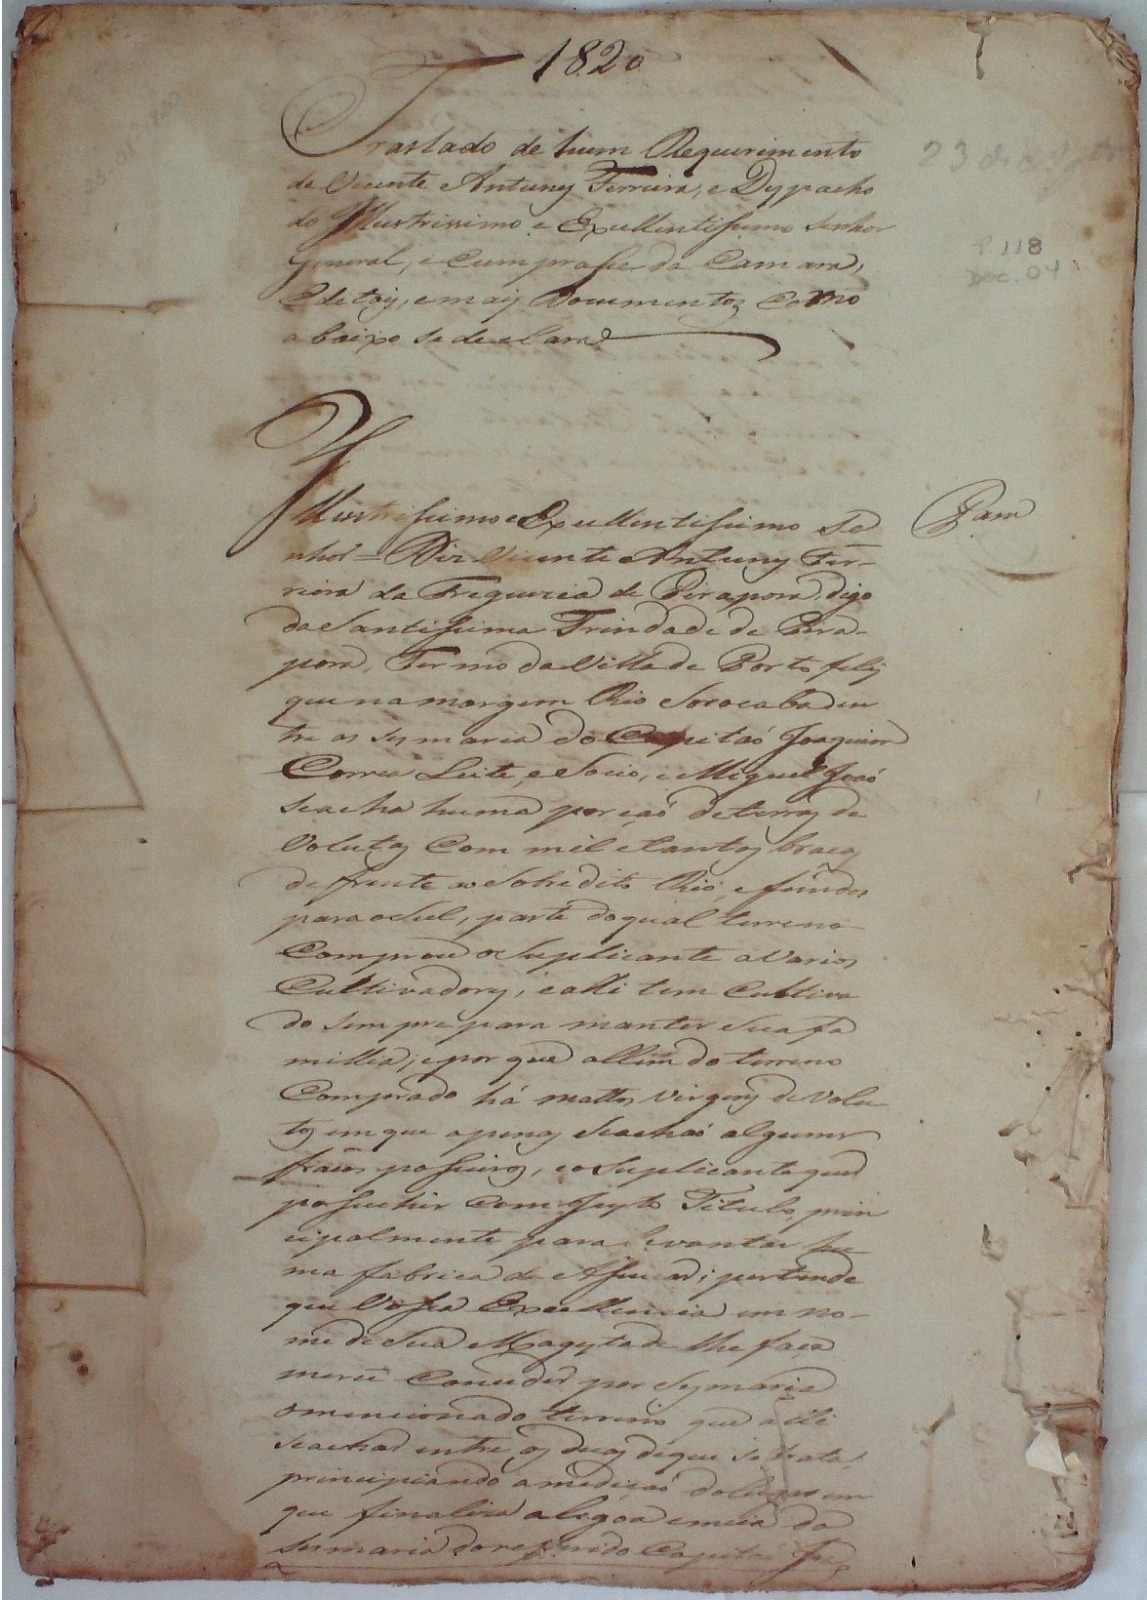 1820
Traslado de hum Requerimento
de Vicente Antunes Ferreira, e Despacho
do Illustrissimo e Excellentissimo Senhor
General, e Cumprasse da Camara,
Editais, e mais Documentos como
abaixo se declara
23 de
P 118
Doc. 04
Illustrissimo e Excellentissimo Se
nhor = Diz Vicente Antunes Fer-
reira da Freguezia de Pirapora, digo
da Santissima Trindade de Pira-
pora, Termo da Villa de Porto feliz
que na margem Rio Sorocaba en
tre as sesmaria do Capitaõ Joaquim
Correa Leite, e Socio, e Miguel Joaõ
se acha huma porçaõ de terras de
volutas com mil e tantas braças
de frente ao Sobredito Rio, e fundos
para o Sul, parte do qual terreno
Comprou o Suplicante a varios
Cultivadores, e alli tem cultiva
do sempre para manter sua fa
millia; e por que allem do terreno
Comprado há mattos virgens devolu
tos em que apenas se achaõ alguns
possuiros, e o Suplicante quer
possuhir com justo Titulo, prin
cipalmente para levantar hu
ma fabrica de Assucar; pertende
que Vossa Excellencia em no-
me de Sua Magestade lhe faça
merce Conceder por Sesmaria
o mencionado terreno que alli
se achar entre as duas de que se trata
principiando a mediçaõ do lugar em
que finaliza a legoa e meia da
sesmaria do referido Capitaõ Joa